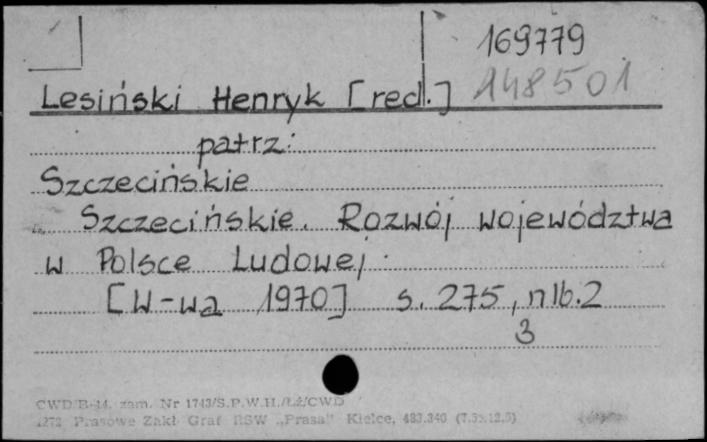 169779
148501
Lesiński Henryk [red.]
patrz:
Szczecińskie
Szczecińskie. Rozwój województwa
w Polsce Ludowej.
[W-wa 1970] s. 275, nlb.2
3
CWD/B-14. zam. Nr 1743/S.P.W.H./Łź/CWD
1272 Prasowe Zakł. Graf RSW „Prasa” Kielce, 483.340 (7.5x12.5)